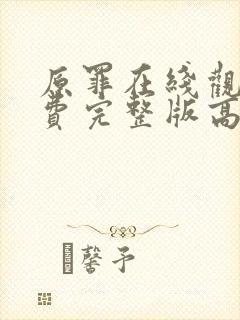 原罪在綫觀
費完整版高
馨予